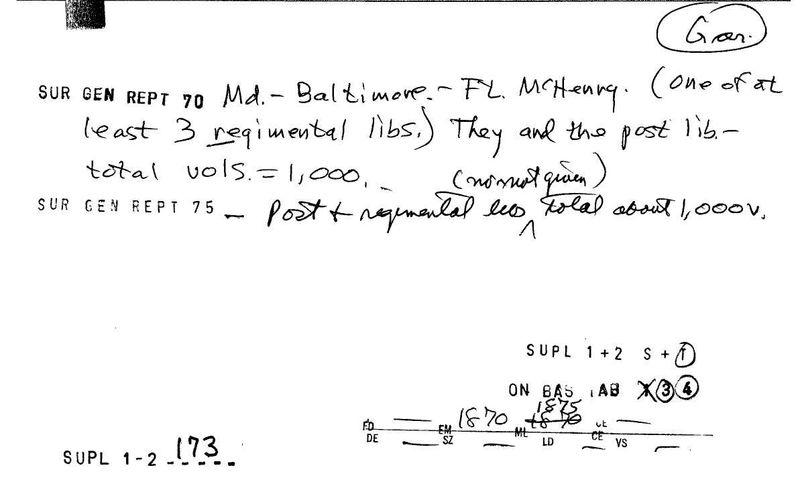 Gar.
SUR GEN REPT 70 Md. - Baltimore. - Ft. McHenry. (One of at
least 3 regimental libs.) They and the post lib. -
total vols. = 1,000. -
(no. not given)
SUR GEN REPT 75 - Post + regimental libs ^ total about 1,000 v.
SUPL 1+2 S+T
ON BAS TAB 1 3 4
1875
FD EM 1870 ML 1870 CE
DE SZ LD CE VS
SUPL 1-2 173